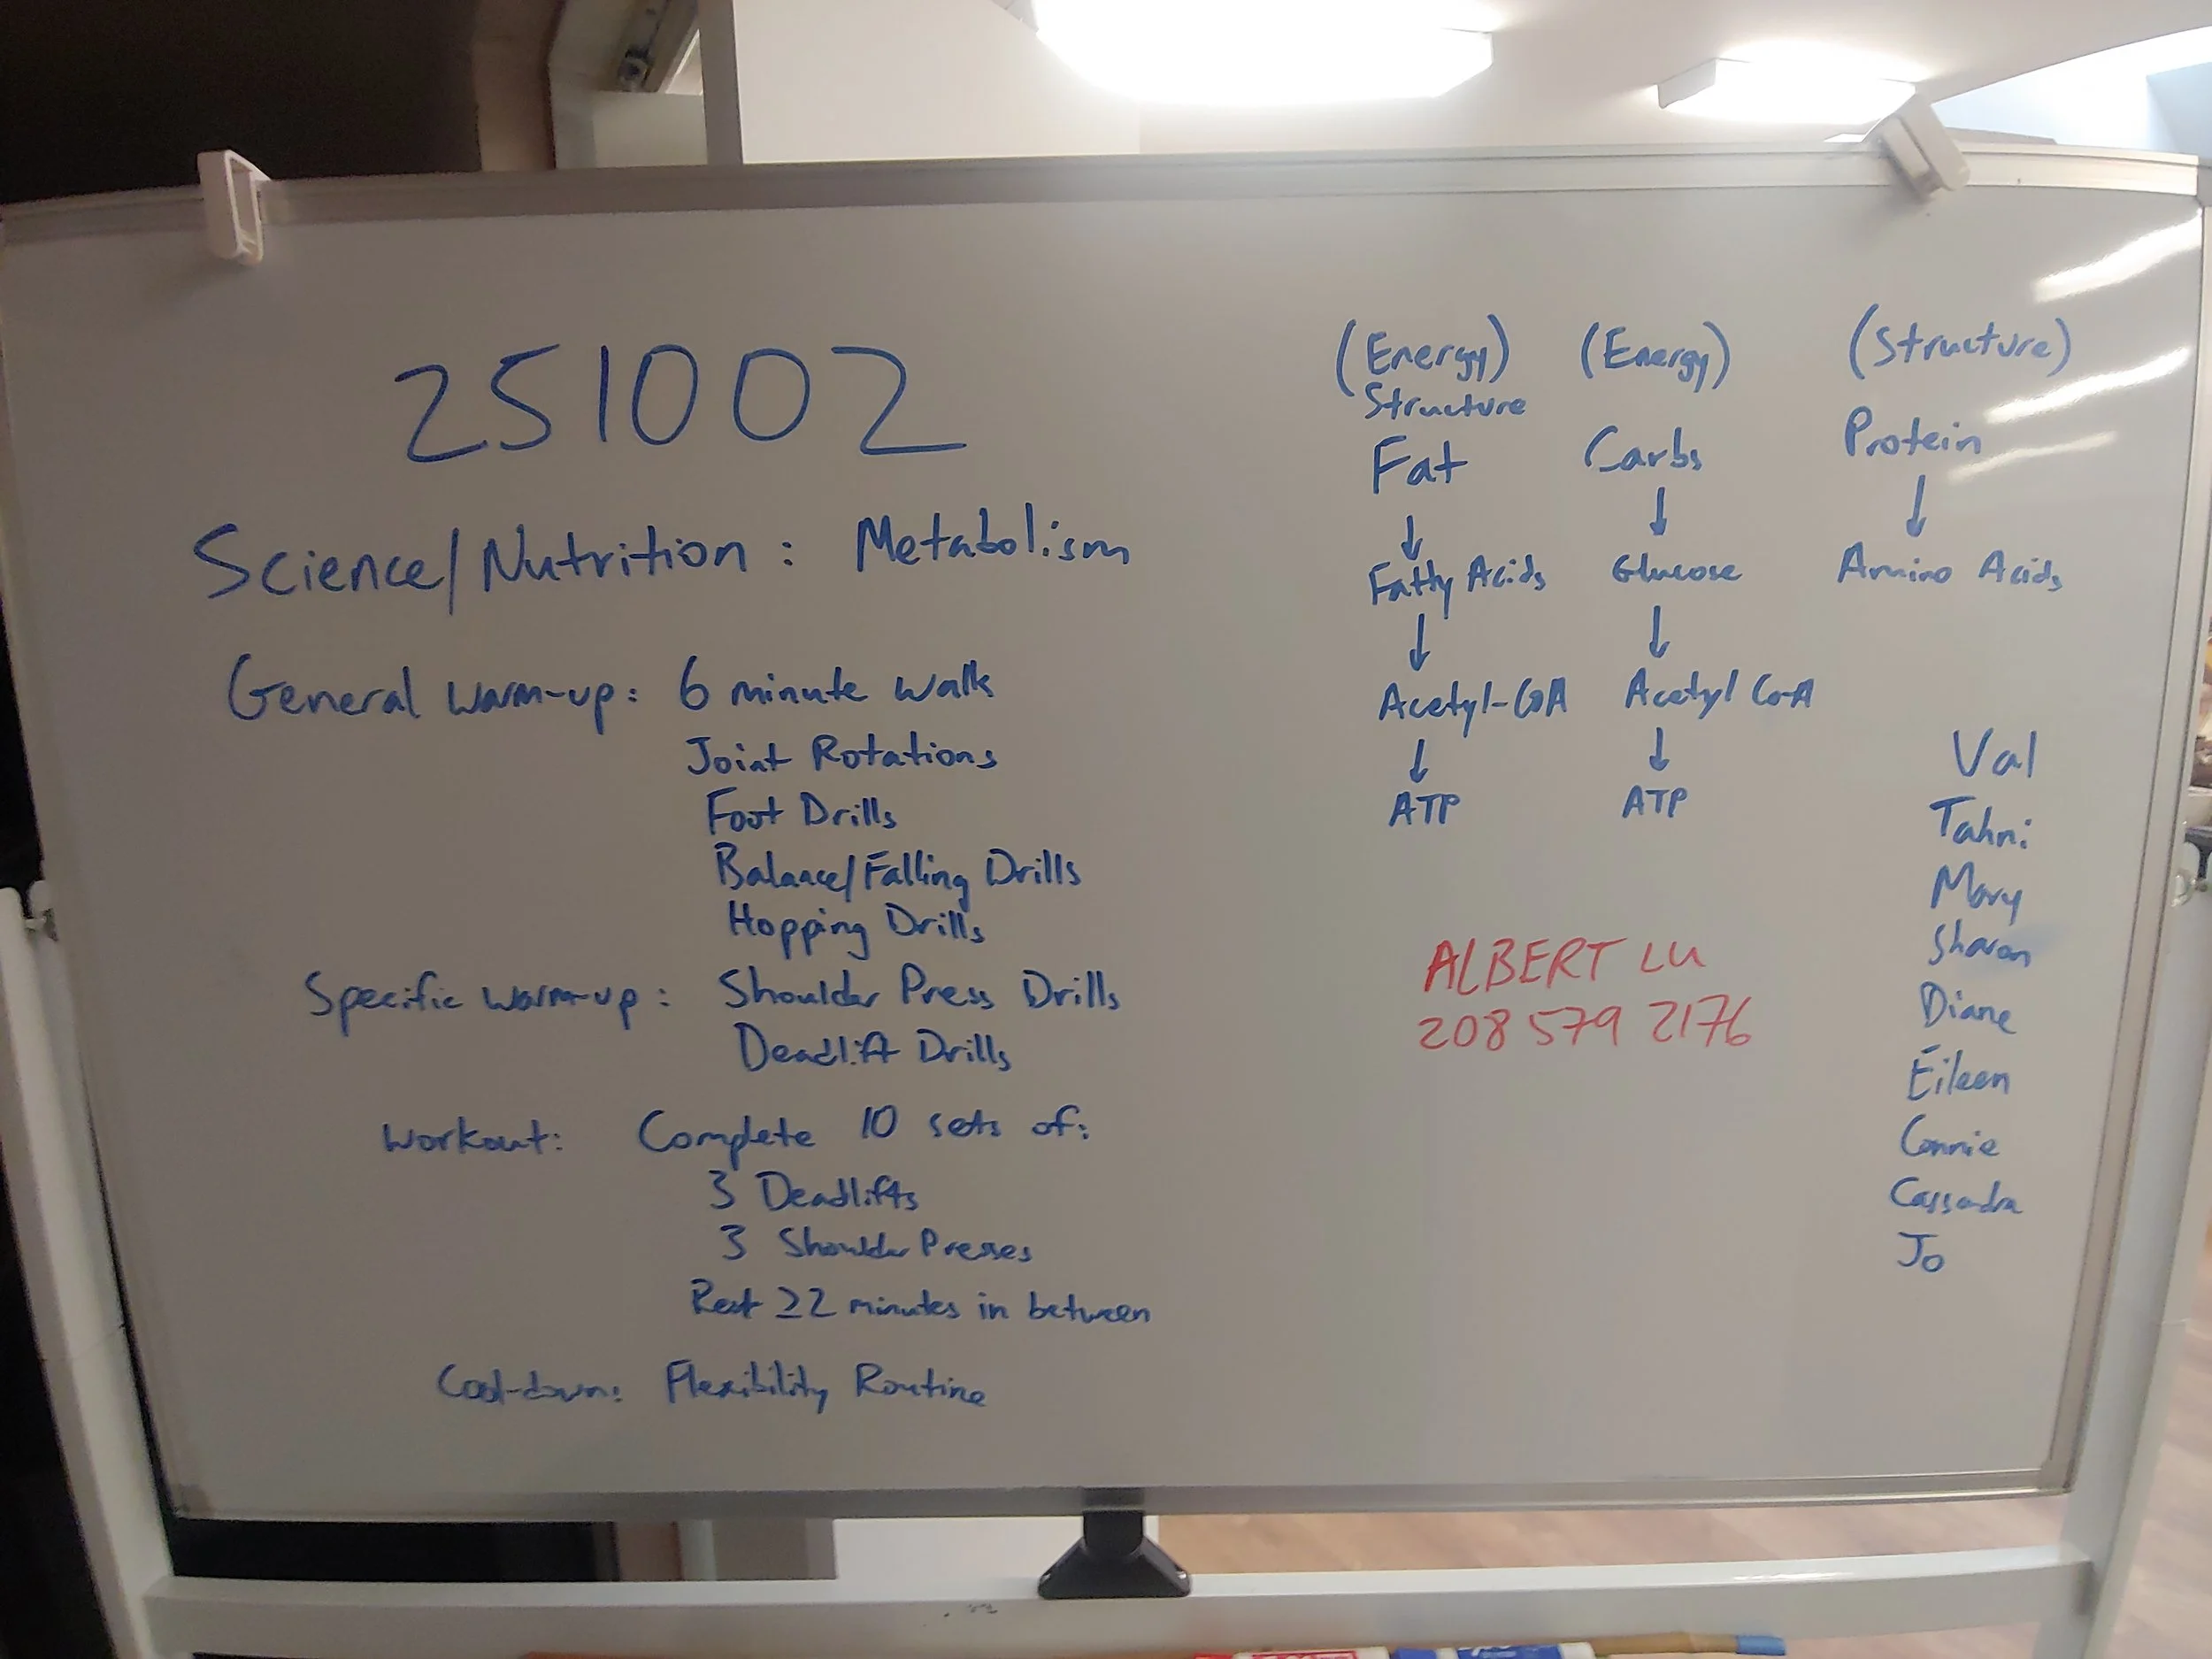 251002
Science/Nutrition: Metabolism
General warm-up: 6 minute walk
Joint Rotations
Foot Drills
Balance/Falling Drills
Hopping Drills
Specific warm-up: Shoulder Press Drills
Deadlift Drills
Workout: Complete 10 sets of:
3 Deadlifts
3 Shoulder Presses
Rest ≥2 minutes in between
Cool-down: Flexibility Routine
(Energy) (Energy) (Structure)
Structure
Fat Carbs Protein
↓ ↓ ↓
Fatty Acids Glucose Amino Acids
↓ ↓
Acetyl-CoA Acetyl Co-A
↓ ↓
ATP ATP
ALBERT LU
208 579 2176
Val
Tahni
Mary
Sharon
Diane
Eileen
Connie
Cassandra
Jo